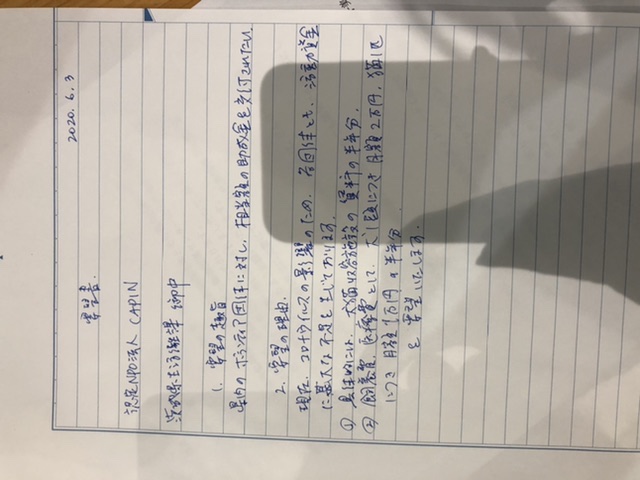 2020.6.3
要望書
認定NPO法人 CAPIN
茨城県生活衛生課 御中
1. 要望の趣旨
県内のボランティア団体に対し、相当額の助成金を交付されたい
2. 要望の理由
現在、コロナウイルスの影響のため、各団体とも、活動資金
に甚大な不足を生じております。
① 具体的には、犬猫収容施設の賃料の半年分
② 飼養費、医療費として、犬1頭につき月額2万円、猫1匹
につき月額1万円の半年分
を要望いたします。